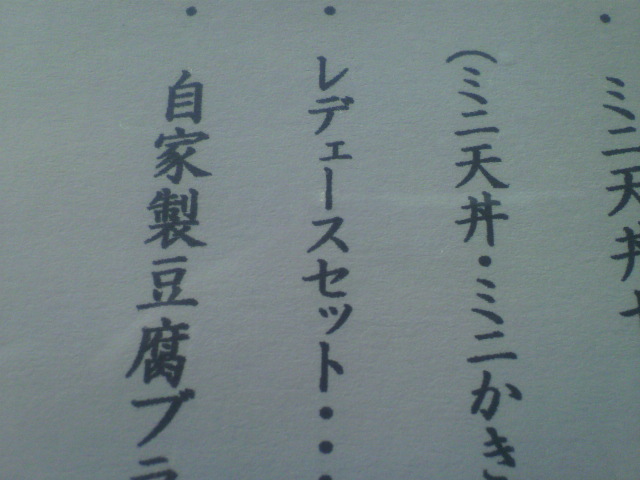 ・ミニ天丼セ
（ミニ天丼・ミニかき
・レデェースセット・・・
・自家製豆腐ブラ